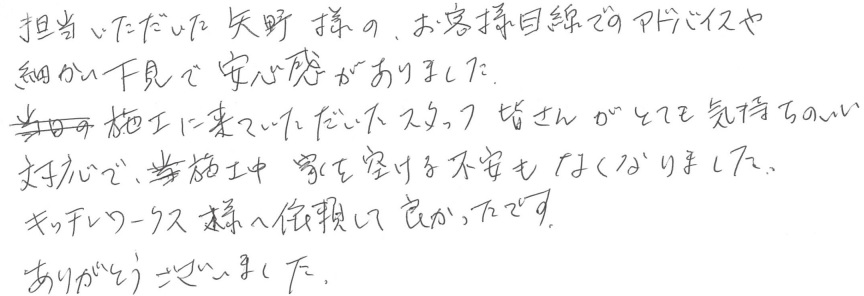 担当いただいた矢野様の、お客様目線でのアドバイスや
細かい下見で安心感がありました。
施工に来ていただいたスタッフ皆さんがとても気持ちのいい
対応で、施工中家を空ける不安もなくなりました。
キッチンワークス様へ依頼して良かったです。
ありがとうございました。